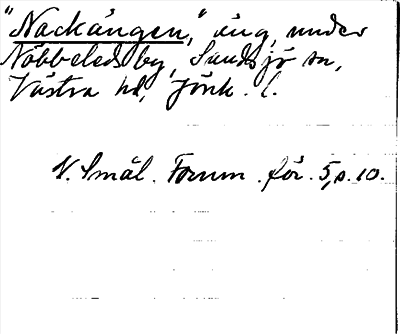 "Nackängen," äng, under
Nöbbeleds by, Sandsjö sn,
Västra hd, Jönk. l.
N. Smål. Fornm. för. 5, s. 10.